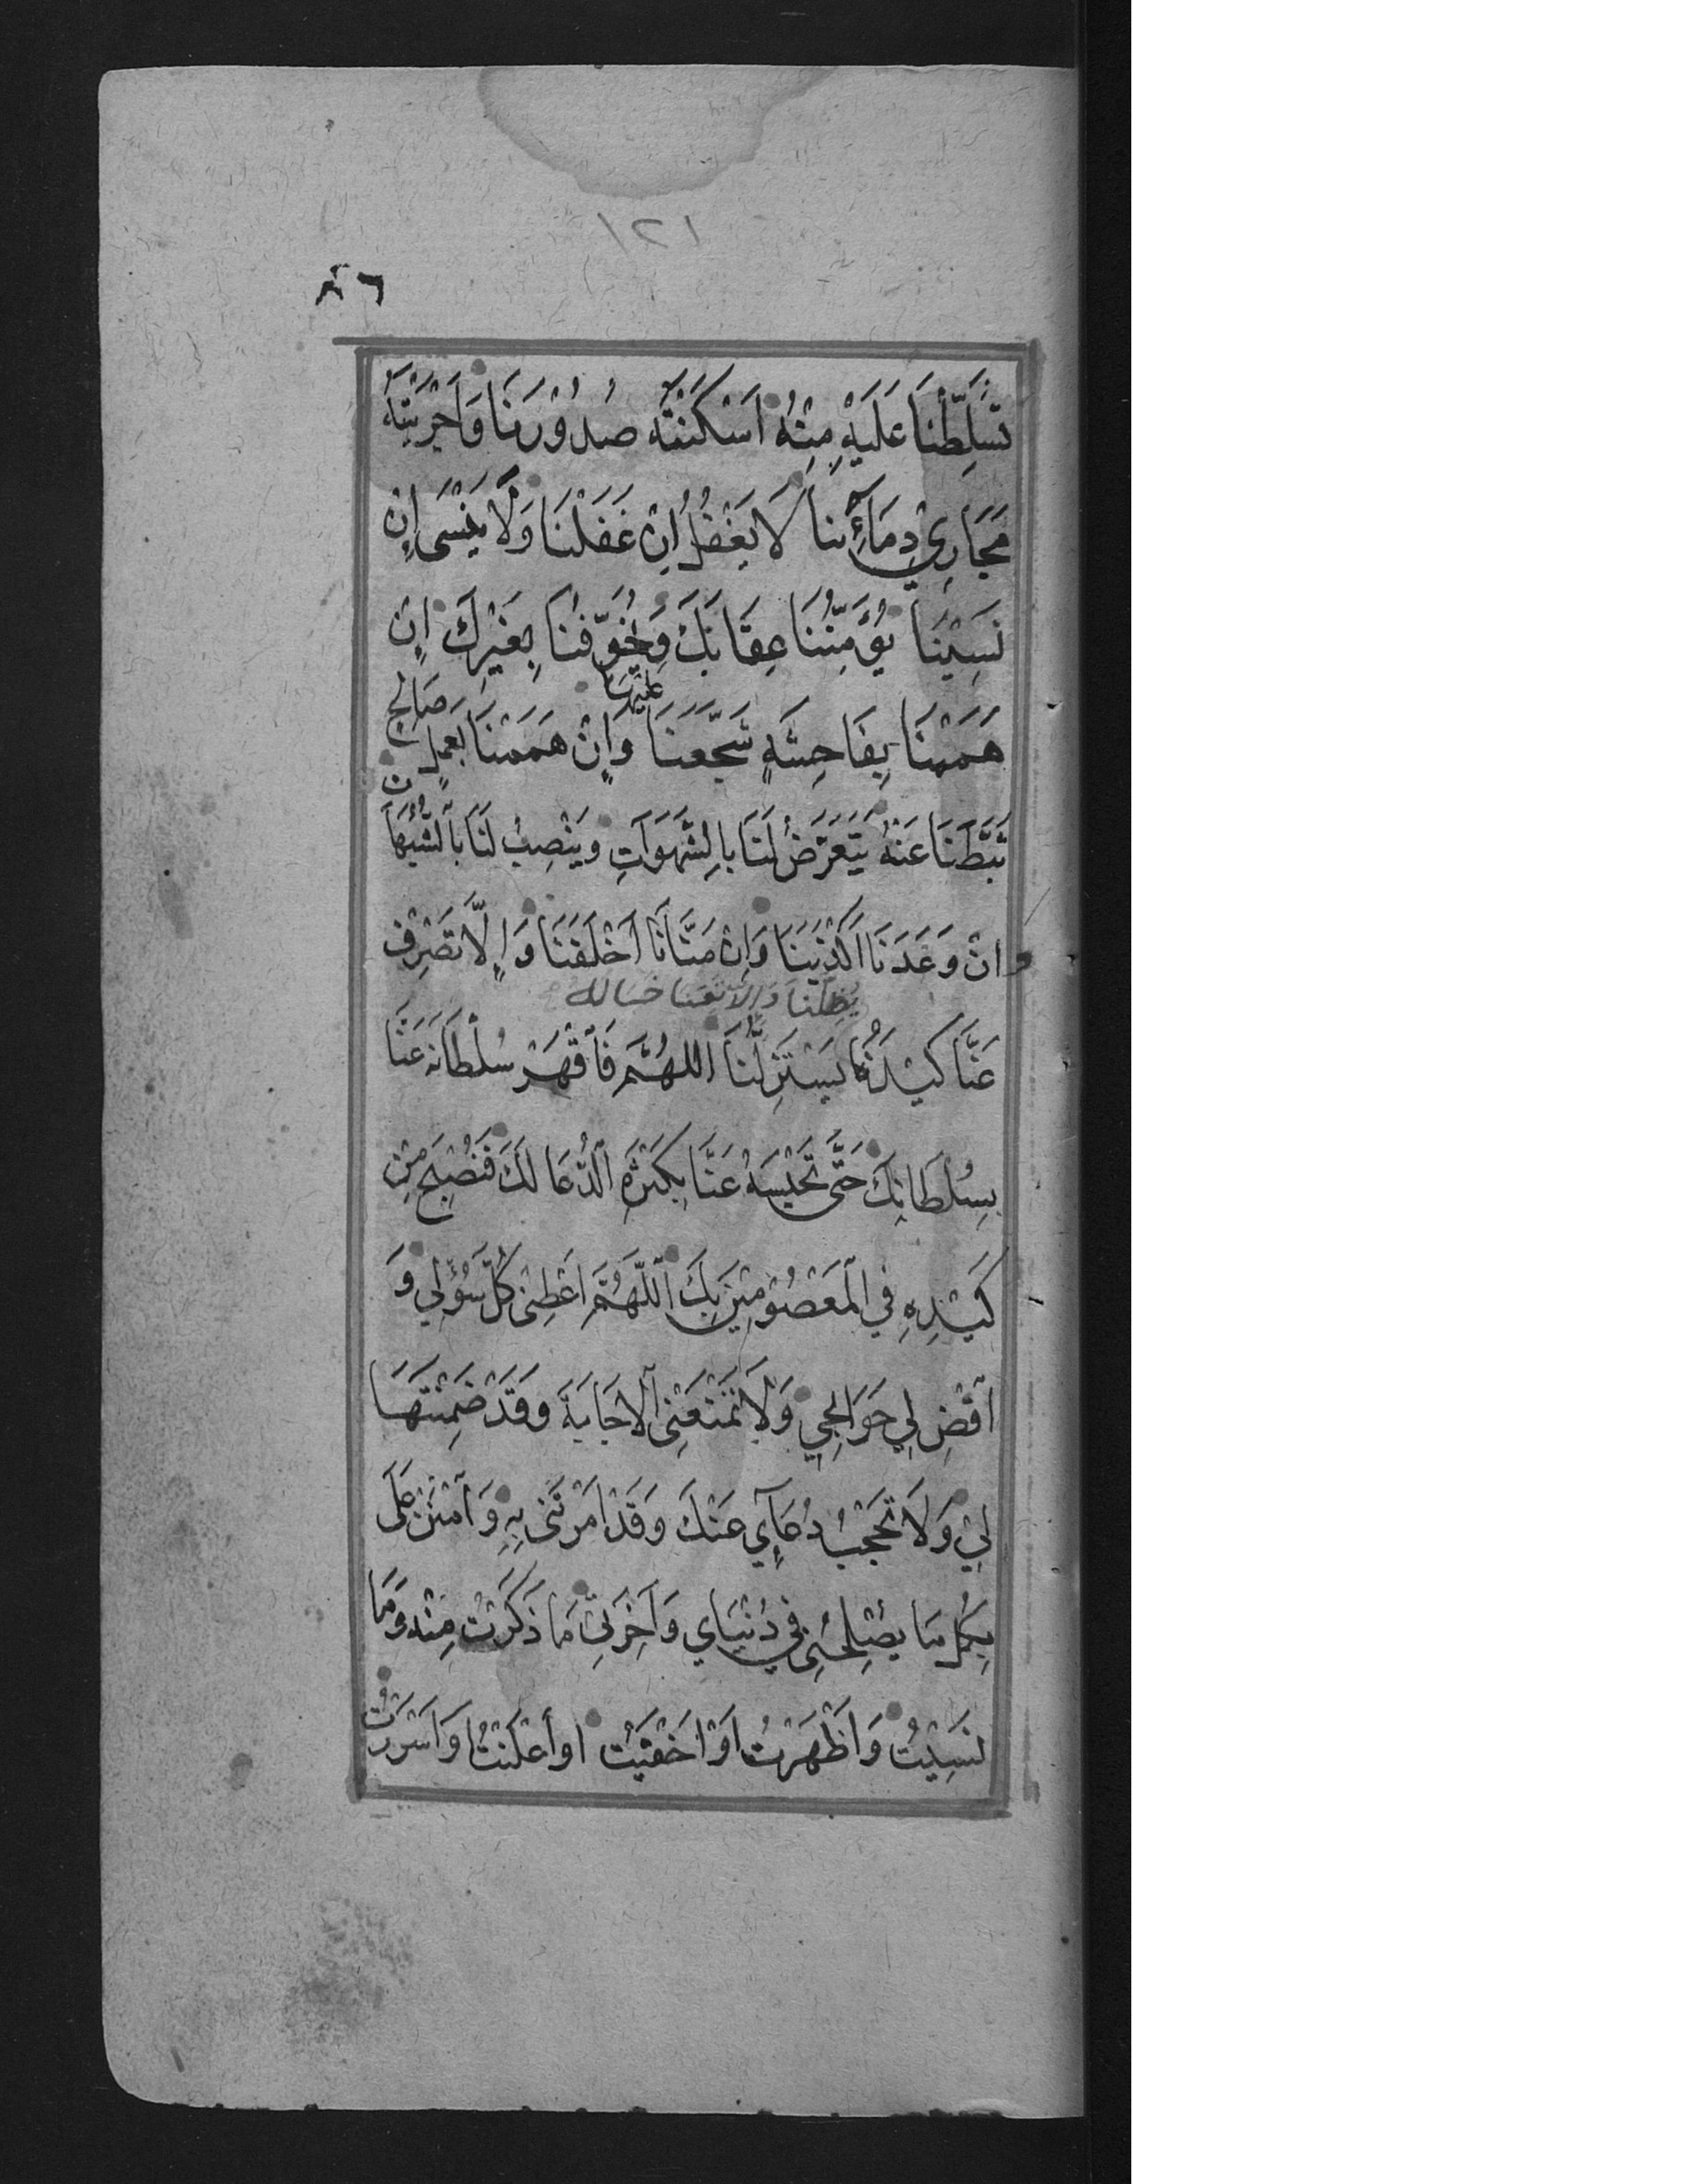 ١٢١
تُسَلِّطْنَا عَلَيْهِ مِنْهُ اَسْكَنْتَهُ صُدُوْرَنَا وَاَجْرَيْتَهُ
مَجَارِيَ دِمَآئِنَا لَا يَغْفُلُ اِنْ غَفَلْنَا وَلَا يَنْسَى اِنْ
نَسِيْنَا يُؤْمِنُنَا عِقَابَكَ وَيُخَوِّفُنَا بِغَيْرِكَ اِنْ
هَمَمْنَا بِفَاحِشَةٍ شَجَّعَنَا عليها وَاِنْ هَمَمْنَا بِعَمَلٍ صَالِحٍ
ثَبَّطَنَا عَنْهُ يَتَعَرَّضُ لَنَا بِالشَّهَوَاتِ وَيَنْصِبُ لَنَا بِالشُّبُهَاتِ
اِنْ وَعَدَنَا اَكْذَبَنَا وَاِنْ مَنَّانَا اَخْلَفَنَا وَاِلَّا تَصْرِفْ
عَنَّا كَيْدَهُ يُضِلَّنَا وَاِلَّا تقنا خباله يَسْتَزِلَّنَا اَللّٰهُمَّ فَاقْهَرْ سُلْطَانَهُ عَنَّا
بِسُلْطَانِكَ حَتَّى تَحْبِسَهُ عَنَّا بِكَثْرَةِ الدُّعَا لَكَ فَنُصْبِحَ مِنْ
كَيْدِهِ فِي الْمَعْصُوْمِيْنَ بِكَ اَللّٰهُمَّ اَعْطِنِيْ كُلَّ سُؤْلِيْ وَ
اقْضِ لِي حَوَائِجِي وَلَا تَمْنَعْنِي الْاِجَابَةَ وَقَدْ ضَمِنْتَهَا
لِيْ وَلَا تَحْجُبْ دُعَآئِي عَنْكَ وَقَدْ اَمَرْتَنِي بِهِ وَامْنُنْ عَلَى
بِكُلِّ مَا يُصْلِحُنِي فِي دُنْيَاي وَاٰخِرَتِيْ مَا ذَكَرْتُ مِنْهُ وَمَا
نَسِيْتُ وَاَظْهَرْتُ اَوْ اَخْفَيْتُ اَوْ اَعْلَنْتُ وَاَسْرَرْتُ